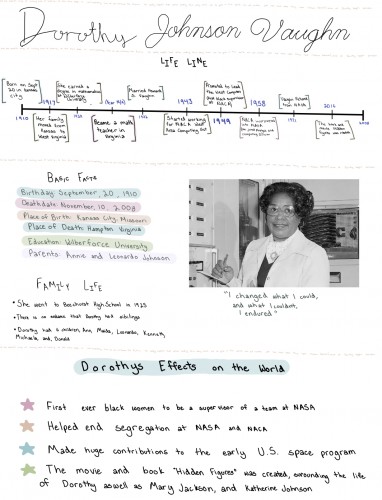 Dorothy Johnson Vaughn
LIFE LINE
Born on Sept
20 in Kansas
city
She earned a
degree in mathematics
at Wilberforce
University
Married Howard
S. Vaughn
1943
Promoted to lead
the West Computers
1958
Vaughn Retired
from NASA
2016
1910
1917
1949
Her family
moved from
Kansas to
West Virginia
Became a math
teacher in
Virginia
Started working
for NACA West
Area Computing Unit
NACA
Basic Facts
Birthday: September, 20, 1910
Deathdate: November, 10, 2008
Place of Birth: Kansas City, Missouri
Place of Death: Hampton Virginia
Education: Wilberforce University
Parents: Annie and Leonardo Johnson
Family Life
• She went to Beechurst High School in 1925
• There is no evidence that Dorothy had siblings
• Dorothy had 6 children, Ann, Maida, Leonardo, Kenneth,
Michaela, and, Donald
"I changed what I could,
and what I couldn't,
I endured"
Dorothys Effects on the World
First ever black women to be a supervisor of a team at NASA
Helped end segregation at NASA and NACA
Made huge contributions to the early U.S. space program
The movie and book "Hidden Figures" was created, surrounding the life
of Dorothy aswell as Mary Jackson, and Katherine Johnson